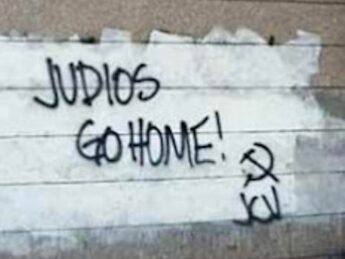 JUDIOS
GO HOME!
JCV